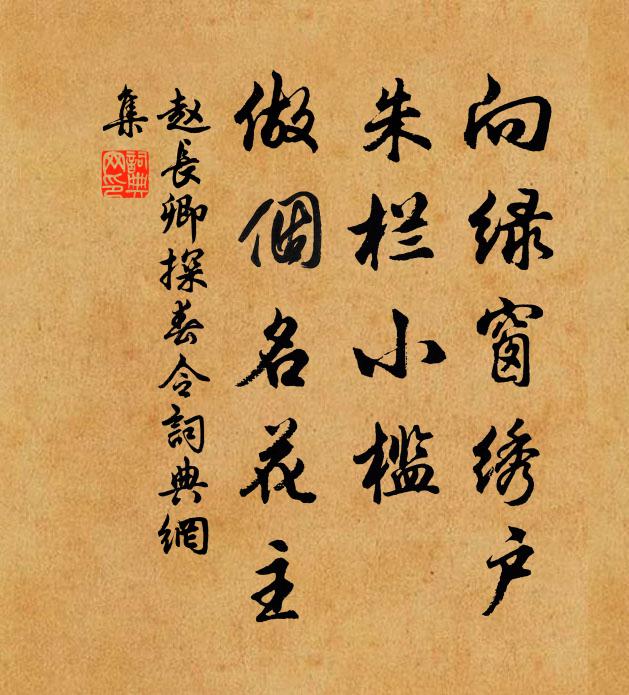 向绿窗绣户
朱栏小槛
做個名花主
赵長卿探春令詞典網
集
詞典
网印